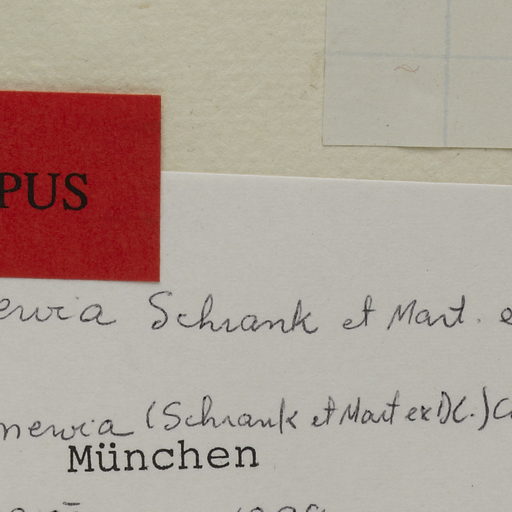 PUS
ervia Schrank et Mart. e
nervia (Schrank et Mart ex DC.) C
München